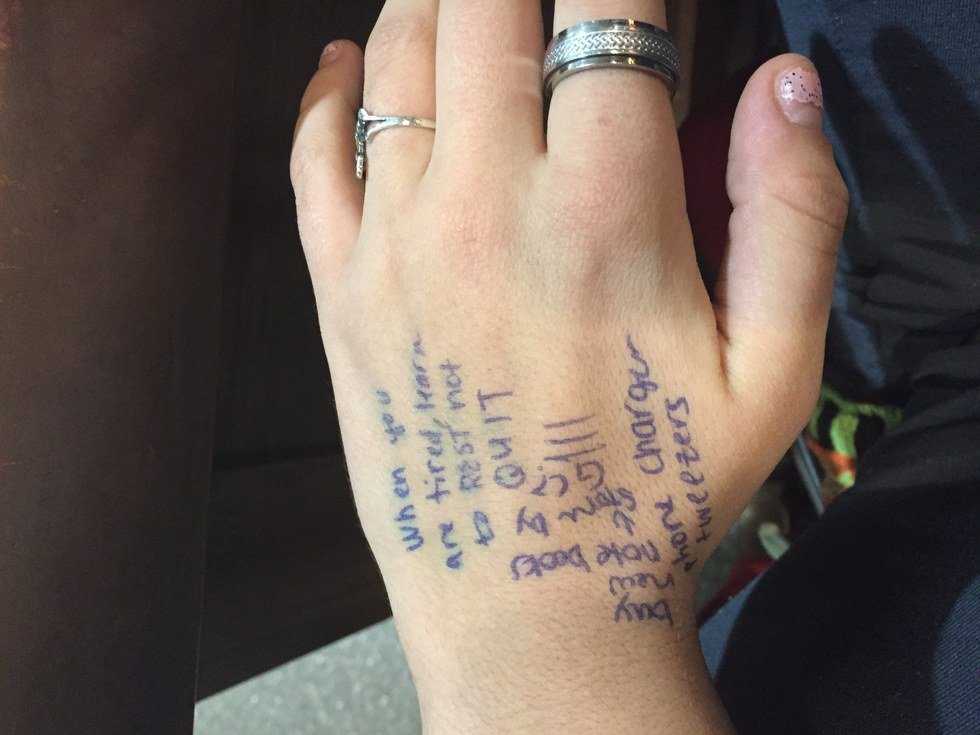 when you
are tired, learn
to REST not
QUIT
buy new
phone charger
tweezers
note books